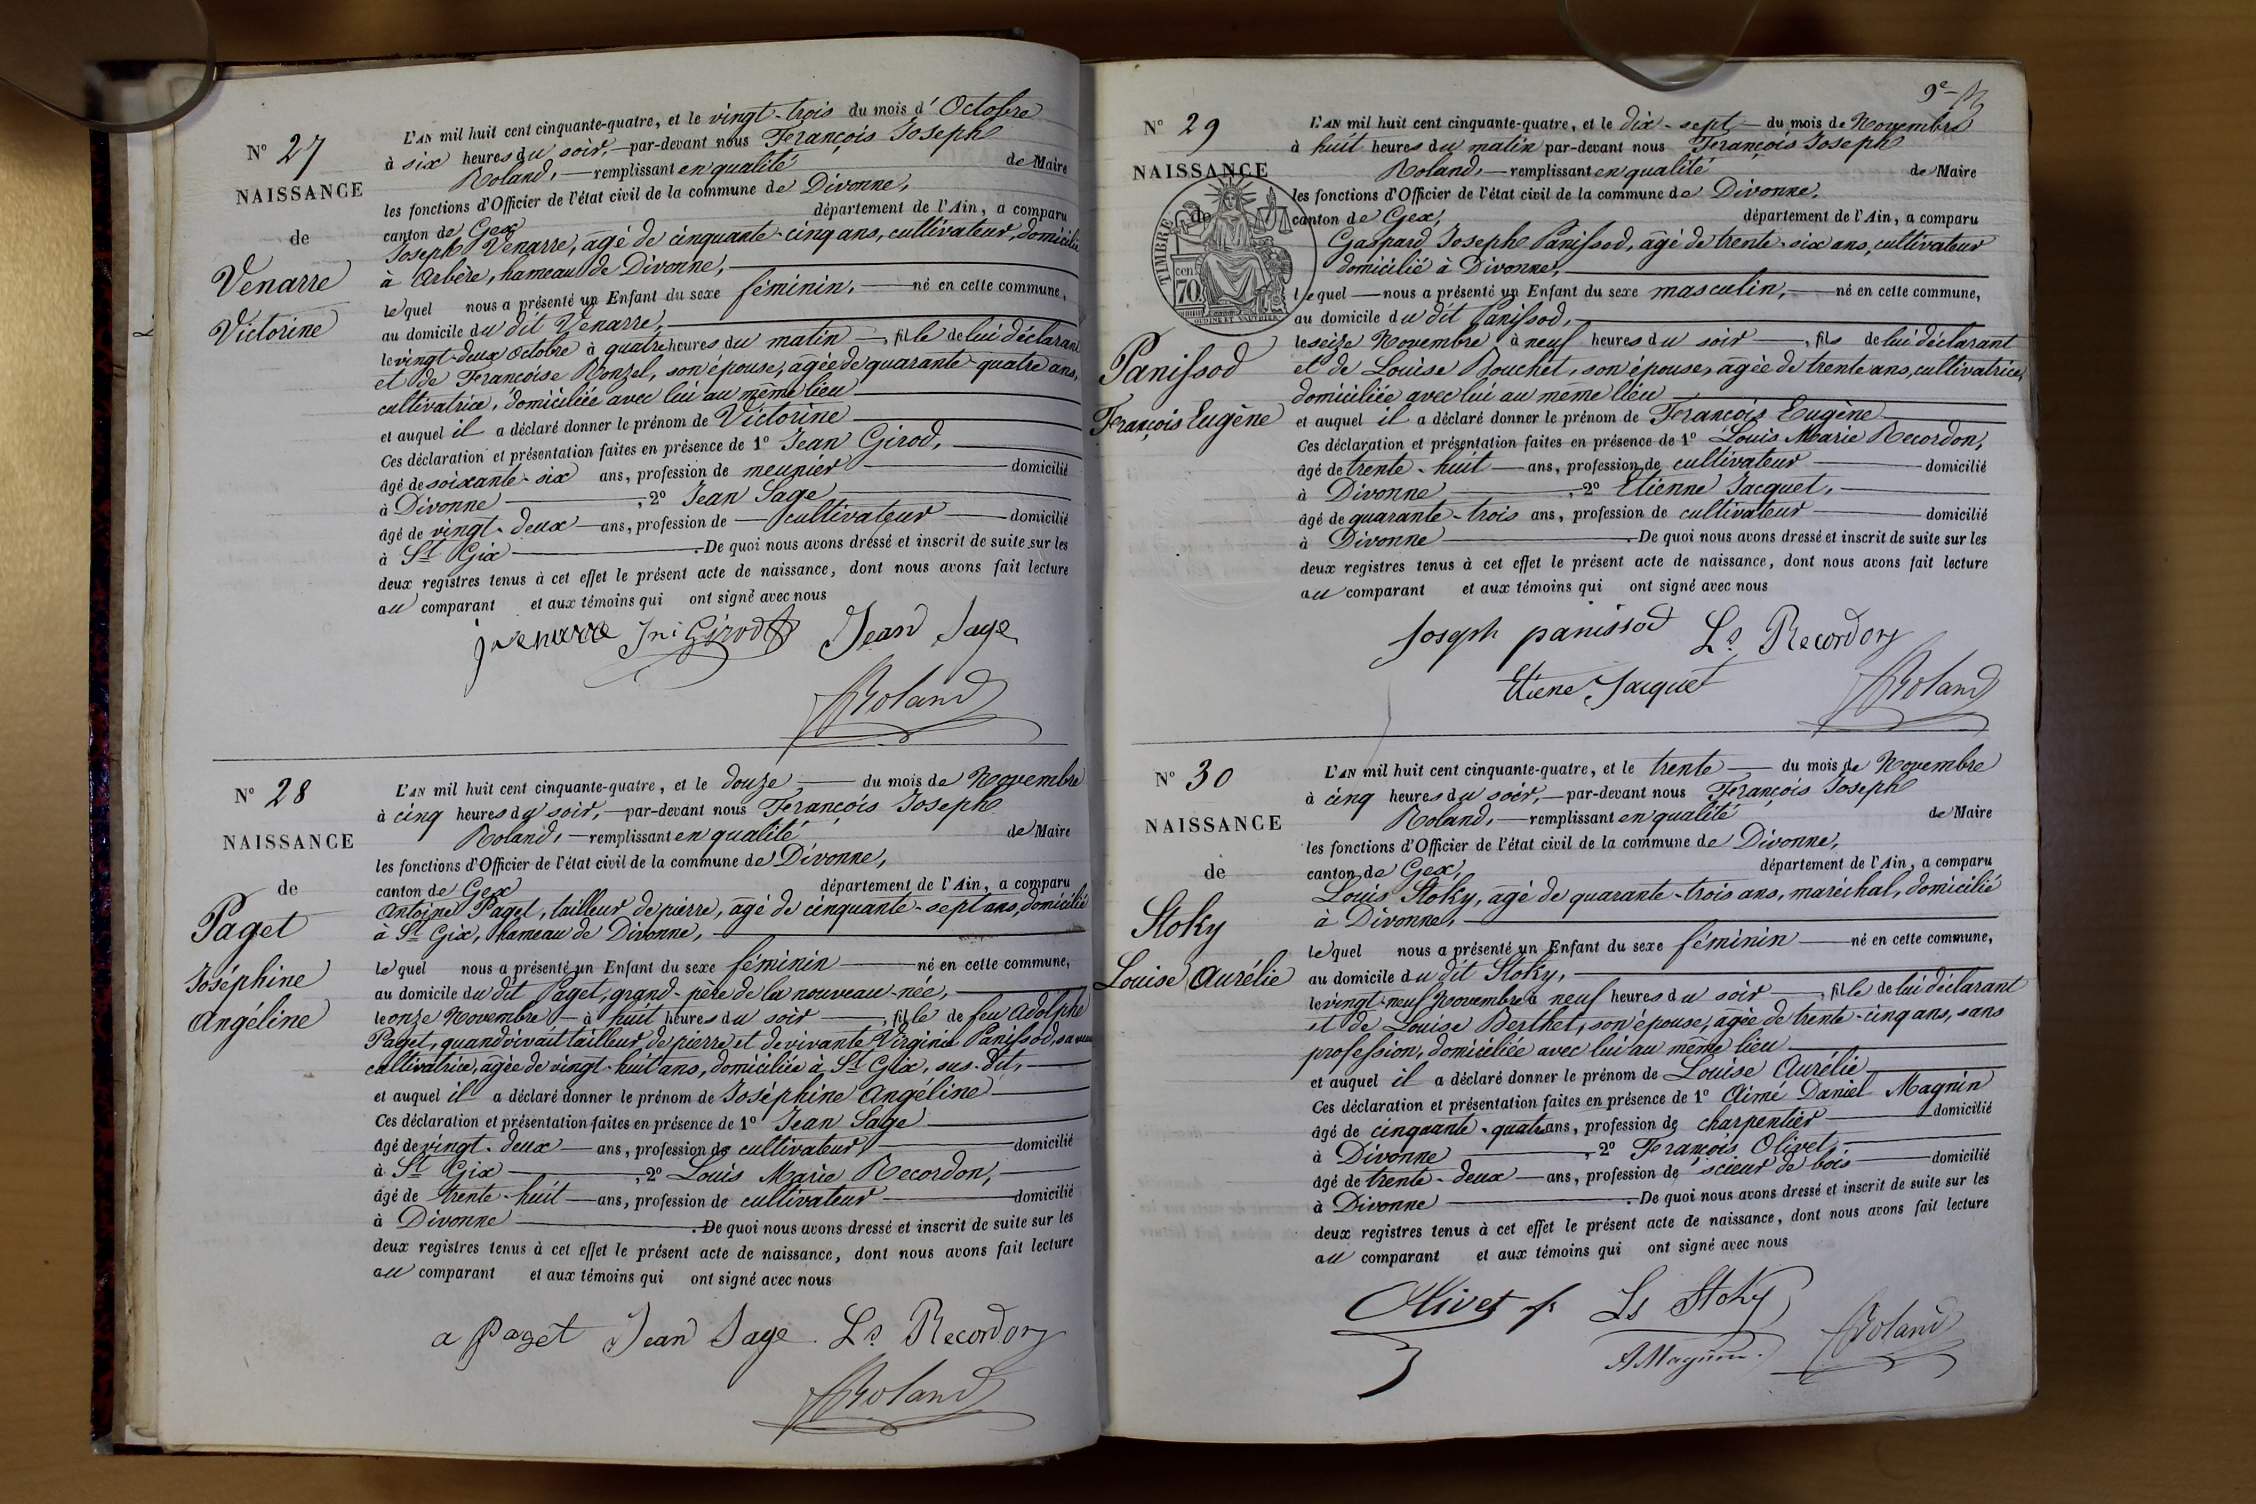 N° 27
NAISSANCE
de
Venarre
Victorine
L'AN mil huit cent cinquante-quatre, et le vingt-trois du mois d'Octobre
à six heures du soir, par-devant nous François Joseph
Roland, remplissant en qualité de Maire
les fonctions d'Officier de l'état civil de la commune de Divonne,
canton de Gex département de l'Ain, a comparu
Joseph Venarre, âgé de cinquante-cinq ans, cultivateur, domicilié
à Arbère, hameau de Divonne,
lequel nous a présenté un Enfant du sexe féminin, né en cette commune,
au domicile du dit Venarre,
le vingt-deux Octobre à quatre heures du matin, fille de lui déclarant
et de Françoise Ronzel, son épouse, agée de quarante-quatre ans,
cultivatrice, domiciliée avec lui au même lieu
et auquel il a déclaré donner le prénom de Victorine
Ces déclaration et présentation faites en présence de 1° Jean Girod,
âgé de soixante-six ans, profession de meunier domicilié
à Divonne, 2° Jean Sage
âgé de vingt-deux ans, profession de cultivateur domicilié
à St Gix. De quoi nous avons dressé et inscrit de suite sur les
deux registres tenus à cet effet le présent acte de naissance, dont nous avons fait lecture
au comparant et aux témoins qui ont signé avec nous
j venarre Jn Girod Jean Sage
Roland
N° 28
NAISSANCE
de
Paget
Joséphine
Angéline
L'AN mil huit cent cinquante-quatre, et le douze, du mois de Novembre
à cinq heures du soir, par-devant nous François Joseph
Roland, remplissant en qualité de Maire
les fonctions d'Officier de l'état civil de la commune de Divonne,
canton de Gex département de l'Ain, a comparu
Antoine Paget, tailleur de pierre, âgé de cinquante-sept ans, domicilié
à St Gix, hameau de Divonne,
lequel nous a présenté un Enfant du sexe féminin né en cette commune,
au domicile du dit Paget, grand-père de la nouveau-née,
le onze Novembre à huit heures du soir, fille de feu Adolphe
Paget, quand vivait tailleur de pierre et de vivante Virginie Panissod, sa veuve
cultivatrice, agée de vingt-huit ans, domiciliée à St Gix, sus-dit,
et auquel il a déclaré donner le prénom de Joséphine Angéline
Ces déclaration et présentation faites en présence de 1° Jean Sage
âgé de vingt-deux ans, profession de cultivateur domicilié
à St Gix, 2° Louis Marie Recordon,
âgé de trente-huit ans, profession de cultivateur domicilié
à Divonne. De quoi nous avons dressé et inscrit de suite sur les
deux registres tenus à cet effet le présent acte de naissance, dont nous avons fait lecture
au comparant et aux témoins qui ont signé avec nous
a paget Jean Sage. Ls Recordon
Roland
9e
N° 29
NAISSANCE
de
TIMBRE
cen 70
Panissod
François Eugène
L'AN mil huit cent cinquante-quatre, et le dix-sept du mois de Novembre
à huit heures du matin par-devant nous François Joseph
Roland, remplissant en qualité de Maire
les fonctions d'Officier de l'état civil de la commune de Divonne,
canton de Gex, département de l'Ain, a comparu
Gaspard Joseph Panissod, âgé de trente-six ans, cultivateur
domicilié à Divonne,
lequel nous a présenté un Enfant du sexe masculin, né en cette commune,
au domicile du dit Panissod,
le seize Novembre à neuf heures du soir, fils de lui déclarant
et de Louise Bouchet, son épouse, agée de trente ans, cultivatrice,
domiciliée avec lui au même lieu
et auquel il a déclaré donner le prénom de François Eugène
Ces déclaration et présentation faites en présence de 1° Louis Marie Recordon,
âgé de trente-huit ans, profession de cultivateur domicilié
à Divonne, 2° Etienne Jacquet,
âgé de quarante-trois ans, profession de cultivateur domicilié
à Divonne. De quoi nous avons dressé et inscrit de suite sur les
deux registres tenus à cet effet le présent acte de naissance, dont nous avons fait lecture
au comparant et aux témoins qui ont signé avec nous
Joseph panissod Ls Recordon
Etiene Jacquet Roland
N° 30
NAISSANCE
de
Stoky
Louise Aurélie
L'AN mil huit cent cinquante-quatre, et le trente du mois de Novembre
à cinq heures du soir, par-devant nous François Joseph
Roland, remplissant en qualité de Maire
les fonctions d'Officier de l'état civil de la commune de Divonne,
canton de Gex, département de l'Ain, a comparu
Louis Stoky, âgé de quarante-trois ans, maréchal, domicilié
à Divonne,
lequel nous a présenté un Enfant du sexe féminin né en cette commune,
au domicile du dit Stoky,
le vingt-neuf Novembre à neuf heures du soir, fille de lui déclarant
et de Louise Berthet, son épouse, agée de trente-cinq ans, sans
profession, domiciliée avec lui au même lieu
et auquel il a déclaré donner le prénom de Louise Aurélie
Ces déclaration et présentation faites en présence de 1° Aimé Daniel Magnin
âgé de cinquante-quatre ans, profession de charpentier domicilié
à Divonne, 2° François Olivet,
âgé de trente-deux ans, profession de scieur de bois domicilié
à Divonne. De quoi nous avons dressé et inscrit de suite sur les
deux registres tenus à cet effet le présent acte de naissance, dont nous avons fait lecture
au comparant et aux témoins qui ont signé avec nous
Olivet f. Ls Stoky
A Magnin. Roland